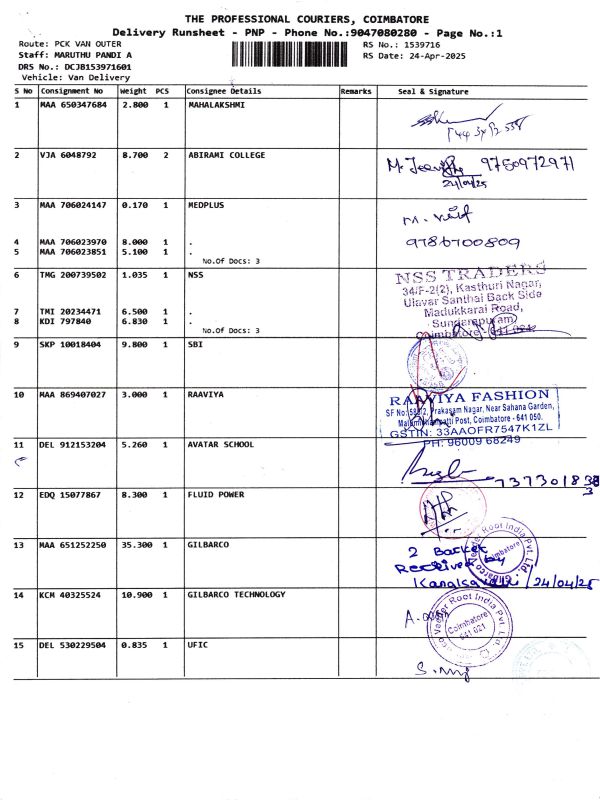 THE PROFESSIONAL COURIERS, COIMBATORE
Delivery Runsheet - PNP - Phone No.:9047080280 - Page No.:1
Route: PCK VAN OUTER
RS No.: 1539716
Staff: MARUTHU PANDI A
RS Date: 24-Apr-2025
DRS No.: DCJB153971601
Vehicle: Van Delivery
S No Consignment No Weight PCS Consignee Details Remarks Seal & Signature
1 MAA 650347684 2.800 1 MAHALAKSHMI
2 VJA 6048792 8.700 2 ABIRAMI COLLEGE
9750972971
24/04/25
3 MAA 706024147 0.170 1 MEDPLUS
4 MAA 706023970 8.000 1 . 9786700809
5 MAA 706023851 5.100 1 .
No.Of Docs: 3
6 TMG 200739502 1.035 1 NSS
NSS TRADERS
34/F-2(2), Kasthuri Nagar,
Ulavar Santhai Back Side
Madukkarai Road,
Sundarapuram,
Coimbatore - 641 024.
7 TMI 20234471 6.500 1 .
8 KDI 797840 6.830 1 .
No.Of Docs: 3
9 SKP 10018404 9.800 1 SBI
10 MAA 869407027 3.000 1 RAAVIYA
RAAVIYA FASHION
Prakasam Nagar, Near Sahana Garden,
Post, Coimbatore - 641 050.
GSTIN: 33AAOFR7547K1ZL
PH: 96009 68249
11 DEL 912153204 5.260 1 AVATAR SCHOOL
12 EDQ 15077867 8.300 1 FLUID POWER
13 MAA 651252250 35.300 1 GILBARCO
2
Received by
24/04/25
Gilbarco Veeder Root India Pvt. Ltd.
Coimbatore
14 KCM 40325524 10.900 1 GILBARCO TECHNOLOGY
Veeder Root India Pvt. Ltd.
Coimbatore
641 021
15 DEL 530229504 0.835 1 UFIC